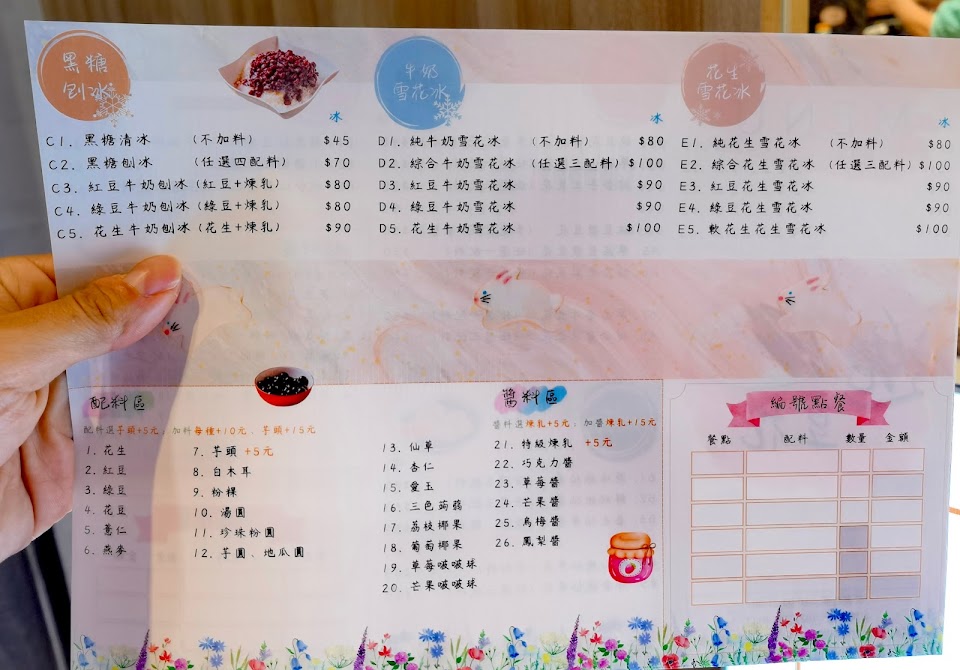 黑糖
刨冰
冰
C1. 黑糖清冰 (不加料) $45
C2. 黑糖刨冰 (任選四配料) $70
C3. 紅豆牛奶刨冰 (紅豆+煉乳) $80
C4. 綠豆牛奶刨冰 (綠豆+煉乳) $80
C5. 花生牛奶刨冰 (花生+煉乳) $90
牛奶
雪花冰
冰
D1. 純牛奶雪花冰 (不加料) $80
D2. 綜合牛奶雪花冰 (任選三配料) $100
D3. 紅豆牛奶雪花冰 $90
D4. 綠豆牛奶雪花冰 $90
D5. 花生牛奶雪花冰 $100
花生
雪花冰
冰
E1. 純花生雪花冰 (不加料) $80
E2. 綜合花生雪花冰 (任選三配料) $100
E3. 紅豆花生雪花冰 $90
E4. 綠豆花生雪花冰 $90
E5. 軟花生花生雪花冰 $100
配料區
配料選芋頭+5元; 加料每種+10元、芋頭+15元
1. 花生
2. 紅豆
3. 綠豆
4. 花豆
5. 薏仁
6. 燕麥
7. 芋頭 +5元
8. 白木耳
9. 粉粿
10. 湯圓
11. 珍珠粉圓
12. 芋圓、地瓜圓
13. 仙草
14. 杏仁
15. 愛玉
16. 三色蒟蒻
17. 荔枝椰果
18. 葡萄椰果
19. 草莓啵啵球
20. 芒果啵啵球
醬料區
醬料選煉乳+5元; 加醬煉乳+15元
21. 特級煉乳 +5元
22. 巧克力醬
23. 草莓醬
24. 芒果醬
25. 烏梅醬
26. 鳳梨醬
編號點餐
餐點 配料 數量 金額